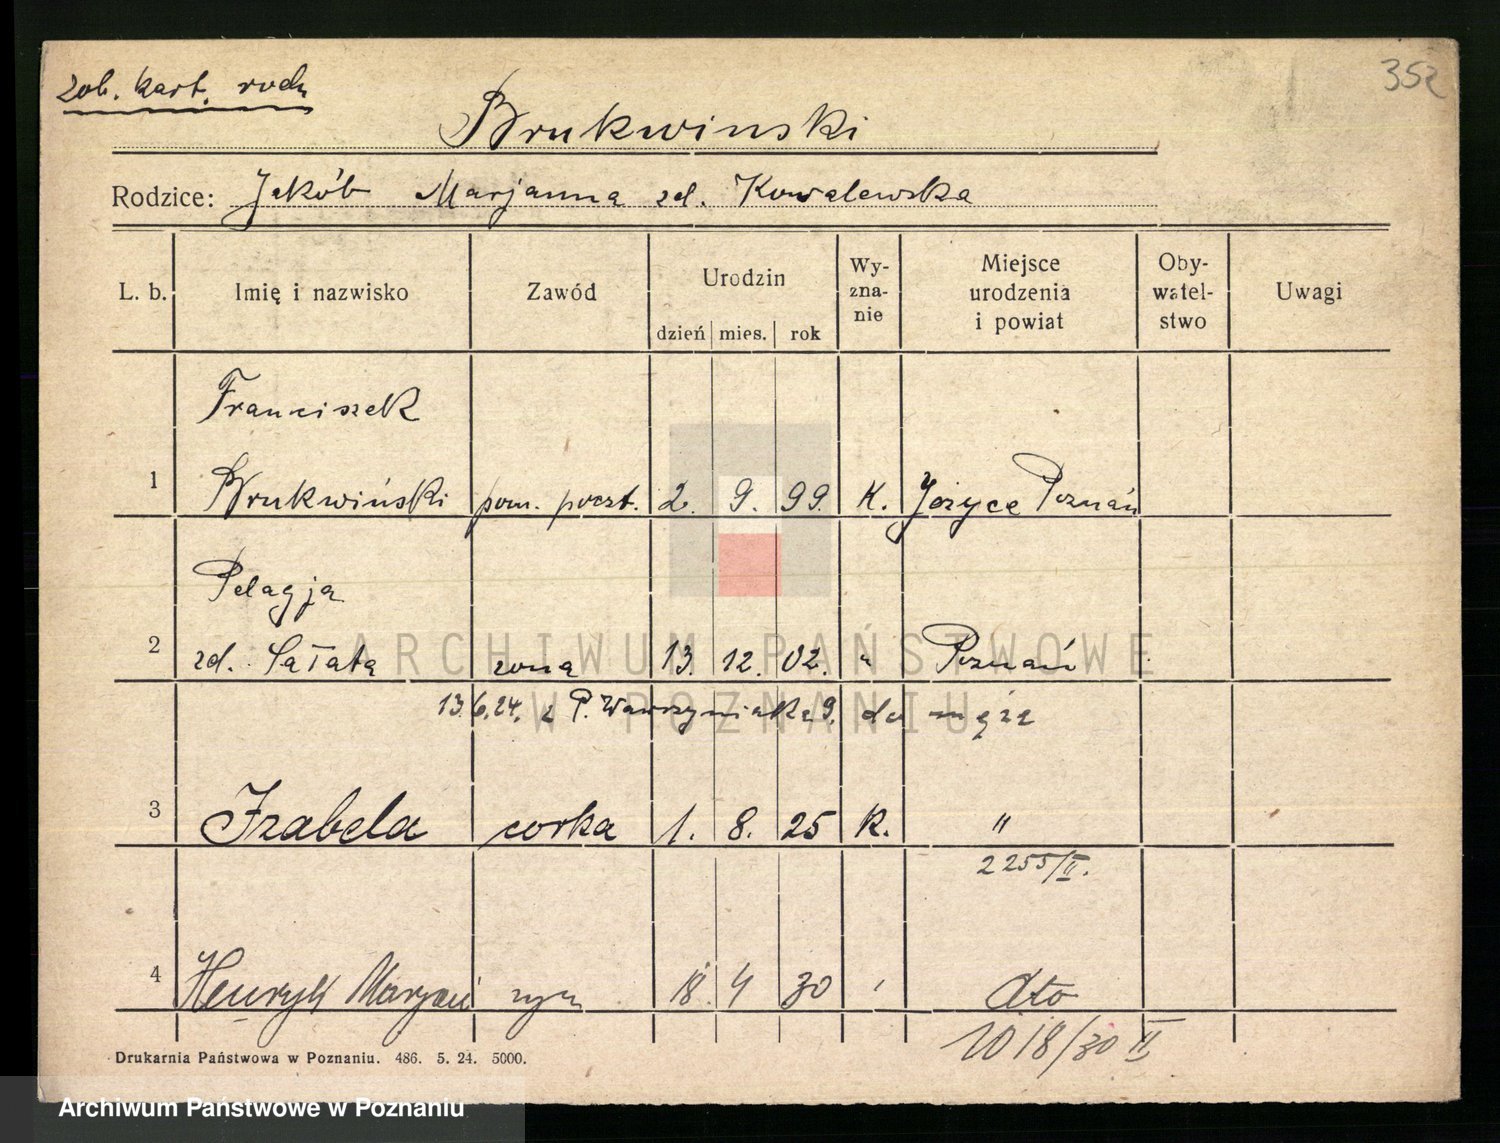 352
zob. kart. rodz
Brukwinski
Rodzice: Jakób Marjanna zd. Kowalewska
L. b. Imię i nazwisko Zawód Urodzin dzień mies. rok Wy-zna-nie Miejsce urodzenia i powiat Oby-watel-stwo Uwagi
Franciszek
1 Brukwiński pom. poczt. 2. 9. 99. K. Jeżyce Poznań
Pelagja
2 zd. Sałata żona 13. 12. 02. " Poznań
13.6.24. z P. Wawrzyniaka 9. do męża
3 Izabela corka 1. 8. 25 K. "
2255/II.
4 Henryk Marjan syn 18. 4 30 " dto
1018/30 II
Drukarnia Państwowa w Poznaniu. 486. 5. 24. 5000.
ARCHIWUM PAŃSTWOWE
W POZNANIU
Archiwum Państwowe w Poznaniu